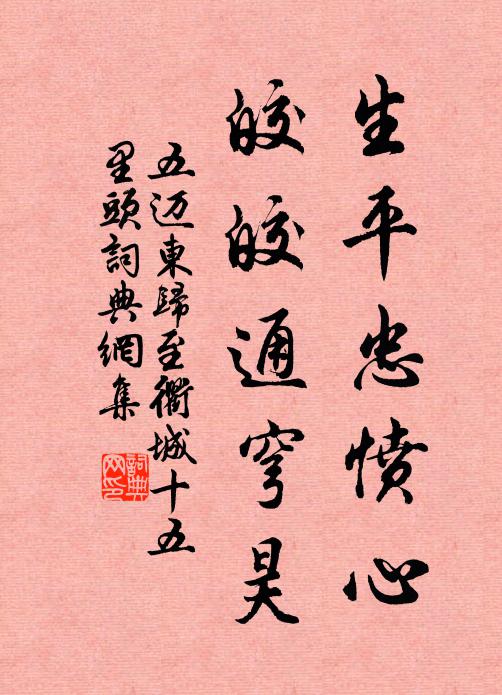 生平忠憤心
皎皎通穹昊
五迈東歸至衢城十五
里頭詞典網集
詞典网印